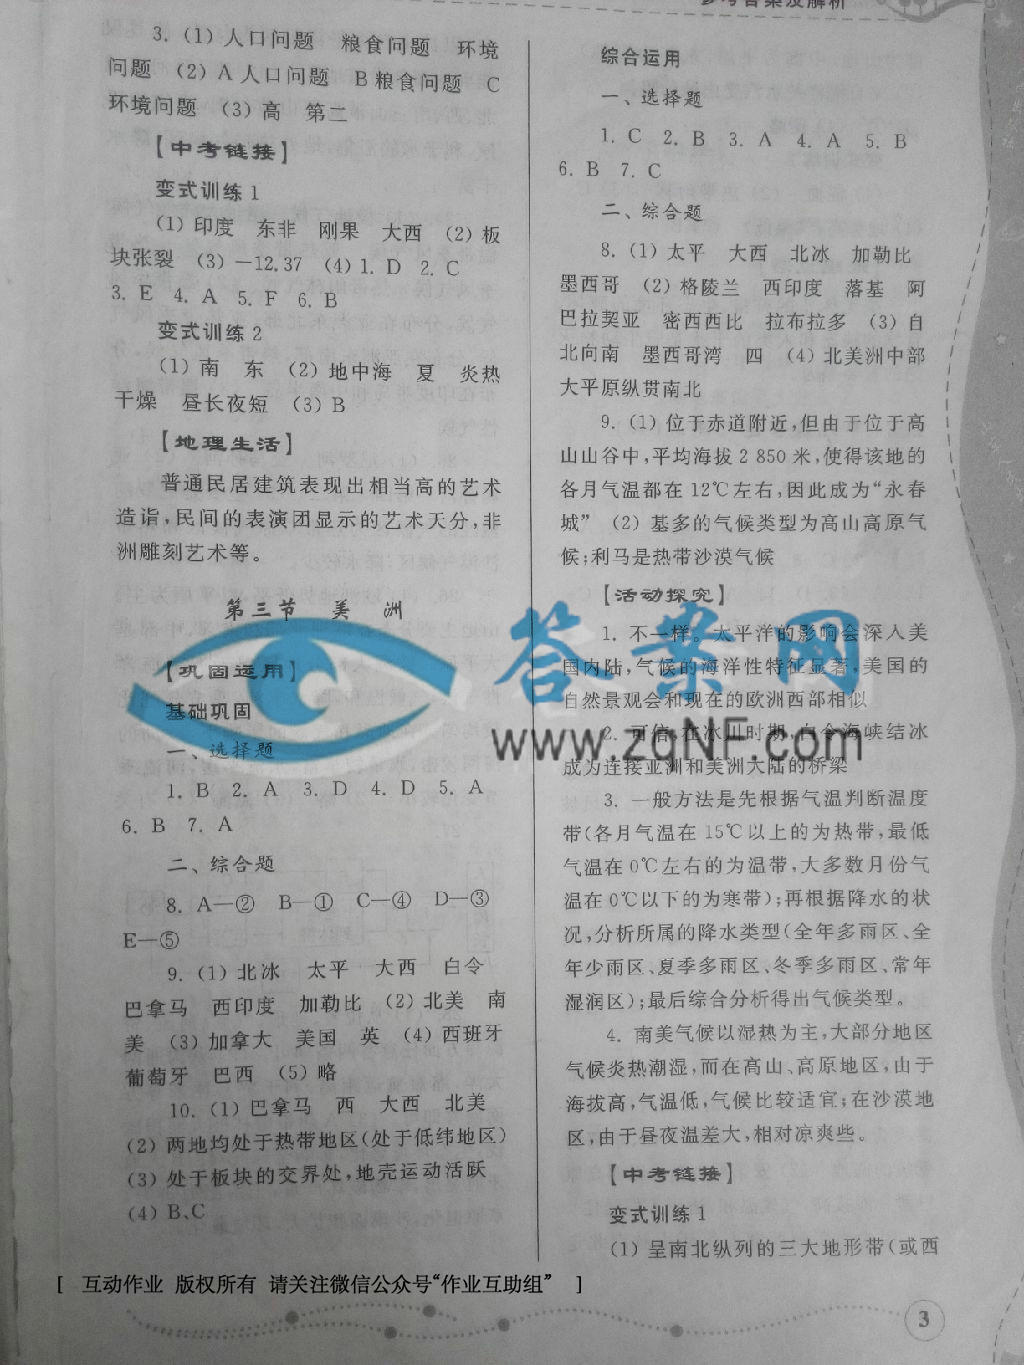 参考答案及解析
3. (1)人口问题 粮食问题 环境
问题 (2)A 人口问题 B 粮食问题 C
环境问题 (3)高 第二
【中考链接】
变式训练 1
(1)印度 东非 刚果 大西 (2)板
块张裂 (3)－12.37 (4)1. D 2. C
3. E 4. A 5. F 6. B
变式训练 2
(1)南 东 (2)地中海 夏 炎热
干燥 昼长夜短 (3)B
【地理生活】
普通民居建筑表现出相当高的艺术
造诣,民间的表演团显示的艺术天分,非
洲雕刻艺术等。
第三节 美 洲
【巩固运用】
基础巩固
一、选择题
1. B 2. A 3. D 4. D 5. A
6. B 7. A
二、综合题
8. A—② B—① C—④ D—③
E—⑤
9. (1)北冰 太平 大西 白令
巴拿马 西印度 加勒比 (2)北美 南
美 (3)加拿大 美国 英 (4)西班牙
葡萄牙 巴西 (5)略
10. (1)巴拿马 西 大西 北美
(2)两地均处于热带地区(处于低纬地区)
(3)处于板块的交界处,地壳运动活跃
(4)B、C
综合运用
一、选择题
1. C 2. B 3. A 4. A 5. B
6. B 7. C
二、综合题
8. (1)太平 大西 北冰 加勒比
墨西哥 (2)格陵兰 西印度 落基 阿
巴拉契亚 密西西比 拉布拉多 (3)自
北向南 墨西哥湾 四 (4)北美洲中部
大平原纵贯南北
9. (1)位于赤道附近,但由于位于高
山山谷中,平均海拔 2 850 米,使得该地的
各月气温都在 12℃左右,因此成为“永春
城” (2)基多的气候类型为高山高原气
候;利马是热带沙漠气候
【活动探究】
1. 不一样。太平洋的影响会深入美
国内陆,气候的海洋性特征显著,美国的
自然景观会和现在的欧洲西部相似
2. 可信,在冰川时期,白令海峡结冰
成为连接亚洲和美洲大陆的桥梁
3. 一般方法是先根据气温判断温度
带(各月气温在 15℃以上的为热带,最低
气温在 0℃左右的为温带,大多数月份气
温在 0℃以下的为寒带);再根据降水的状
况,分析所属的降水类型(全年多雨区、全
年少雨区、夏季多雨区、冬季多雨区、常年
湿润区);最后综合分析得出气候类型。
4. 南美气候以湿热为主,大部分地区
气候炎热潮湿,而在高山、高原地区,由于
海拔高,气温低,气候比较适宜;在沙漠地
区,由于昼夜温差大,相对凉爽些。
【中考链接】
变式训练 1
(1)呈南北纵列的三大地形带(或西
答案网
www.zqNF.com
[ 互动作业 版权所有 请关注微信公众号“作业互助组” ]
3